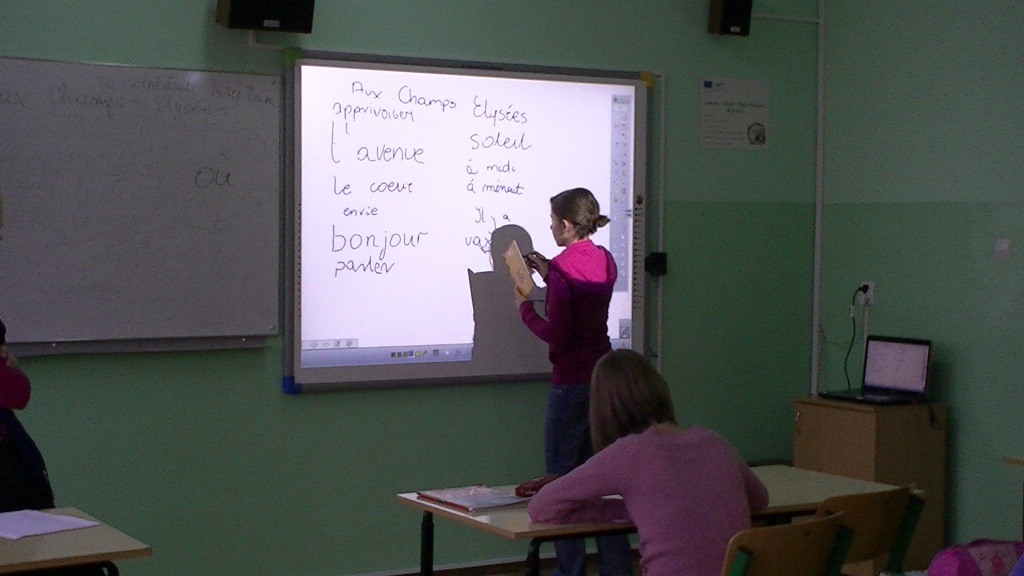 Aux Champs Elysées
apprivoiser
l'avenue
le coeur
envie
bonjour
parler
soleil
á midi
á minuit
Il y a
Champs-Elysées
où